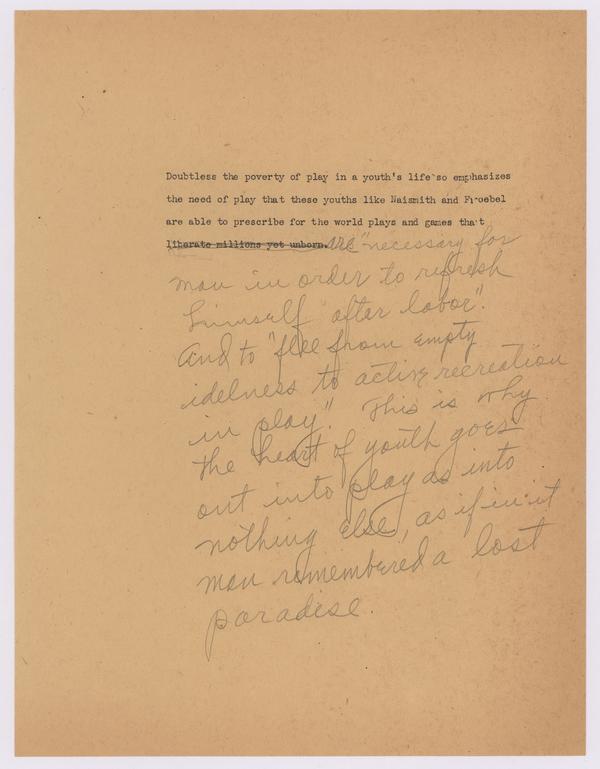 Doubtless the poverty of play in a youth's life so emphasizes
the need of play that these youths like Naismith and Froebel
are able to prescribe for the world plays and games that
liberate millions yet unborn. are "necessary for
man in order to refresh
himself after labor".
And to "flee from empty
idelness to active recreation
in play". This is why
the heart of youth goes
out into play as into
nothing else, as if in it
man remembered a lost
paradise.